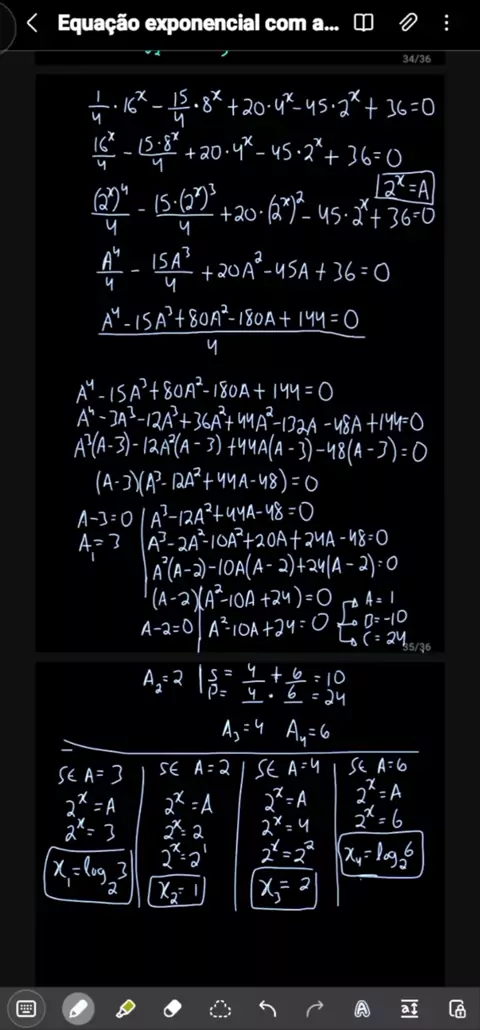 Equação exponencial com a...
34/36
1/4 · 16^x - 15/4 · 8^x + 20·4^x - 45·2^x + 36 = 0
16^x/4 - 15·8^x/4 + 20·4^x - 45·2^x + 36 = 0
2^x = A
(2^x)^4/4 - 15·(2^x)^3/4 + 20·(2^x)^2 - 45·2^x + 36 = 0
A^4/4 - 15A^3/4 + 20A^2 - 45A + 36 = 0
(A^4 - 15A^3 + 80A^2 - 180A + 144 = 0)/4
A^4 - 15A^3 + 80A^2 - 180A + 144 = 0
A^4 - 3A^3 - 12A^3 + 36A^2 + 44A^2 - 132A - 48A + 144 = 0
A^3(A-3) - 12A^2(A-3) + 44A(A-3) - 48(A-3) = 0
(A-3)(A^3 - 12A^2 + 44A - 48) = 0
A-3=0 | A^3 - 12A^2 + 44A - 48 = 0
A₁ = 3 | A^3 - 2A^2 - 10A^2 + 20A + 24A - 48 = 0
A^2(A-2) - 10A(A-2) + 24(A-2) = 0
(A-2)(A^2 - 10A + 24) = 0
A-2=0 | A^2 - 10A + 24 = 0
A=1
B=-10
C=24
35/36
A₂ = 2 | S = 4 + 6 = 10
P = 4 · 6 = 24
A₃ = 4 A₄ = 6
SE A=3
2^x = A
2^x = 3
x₁ = log₂3
SE A=2
2^x = A
2^x = 2
2^x = 2^1
x₂ = 1
SE A=4
2^x = A
2^x = 4
2^x = 2^2
x₃ = 2
SE A=6
2^x = A
2^x = 6
x₄ = log₂6